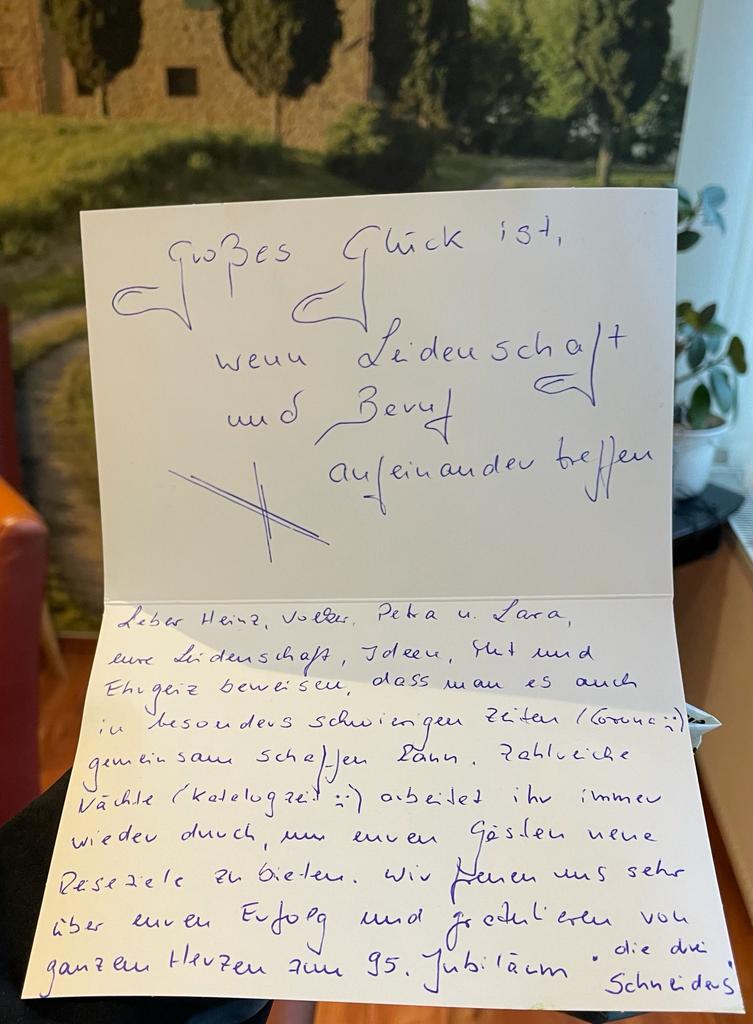 Großes Glück ist,
wenn Leidenschaft
und Beruf
aufeinander treffen
Leber Heinz, Volker, Petra u. Lara,
eure Leidenschaft, Ideen, Mut und
Ehrgeiz beweisen, dass man es auch
in besonders schwierigen Zeiten (Corona :-))
gemeinsam schaffen kann. Zahlreiche
Nächte (Katalogzeit :-)) arbeitet ihr immer
wieder durch, um euren Gästen neue
Reseziele zu bieten. Wir freuen uns sehr
über euren Erfolg und gratulieren von
ganzem Herzen zum 95. Jubiläum
"die drei
Schneiders"